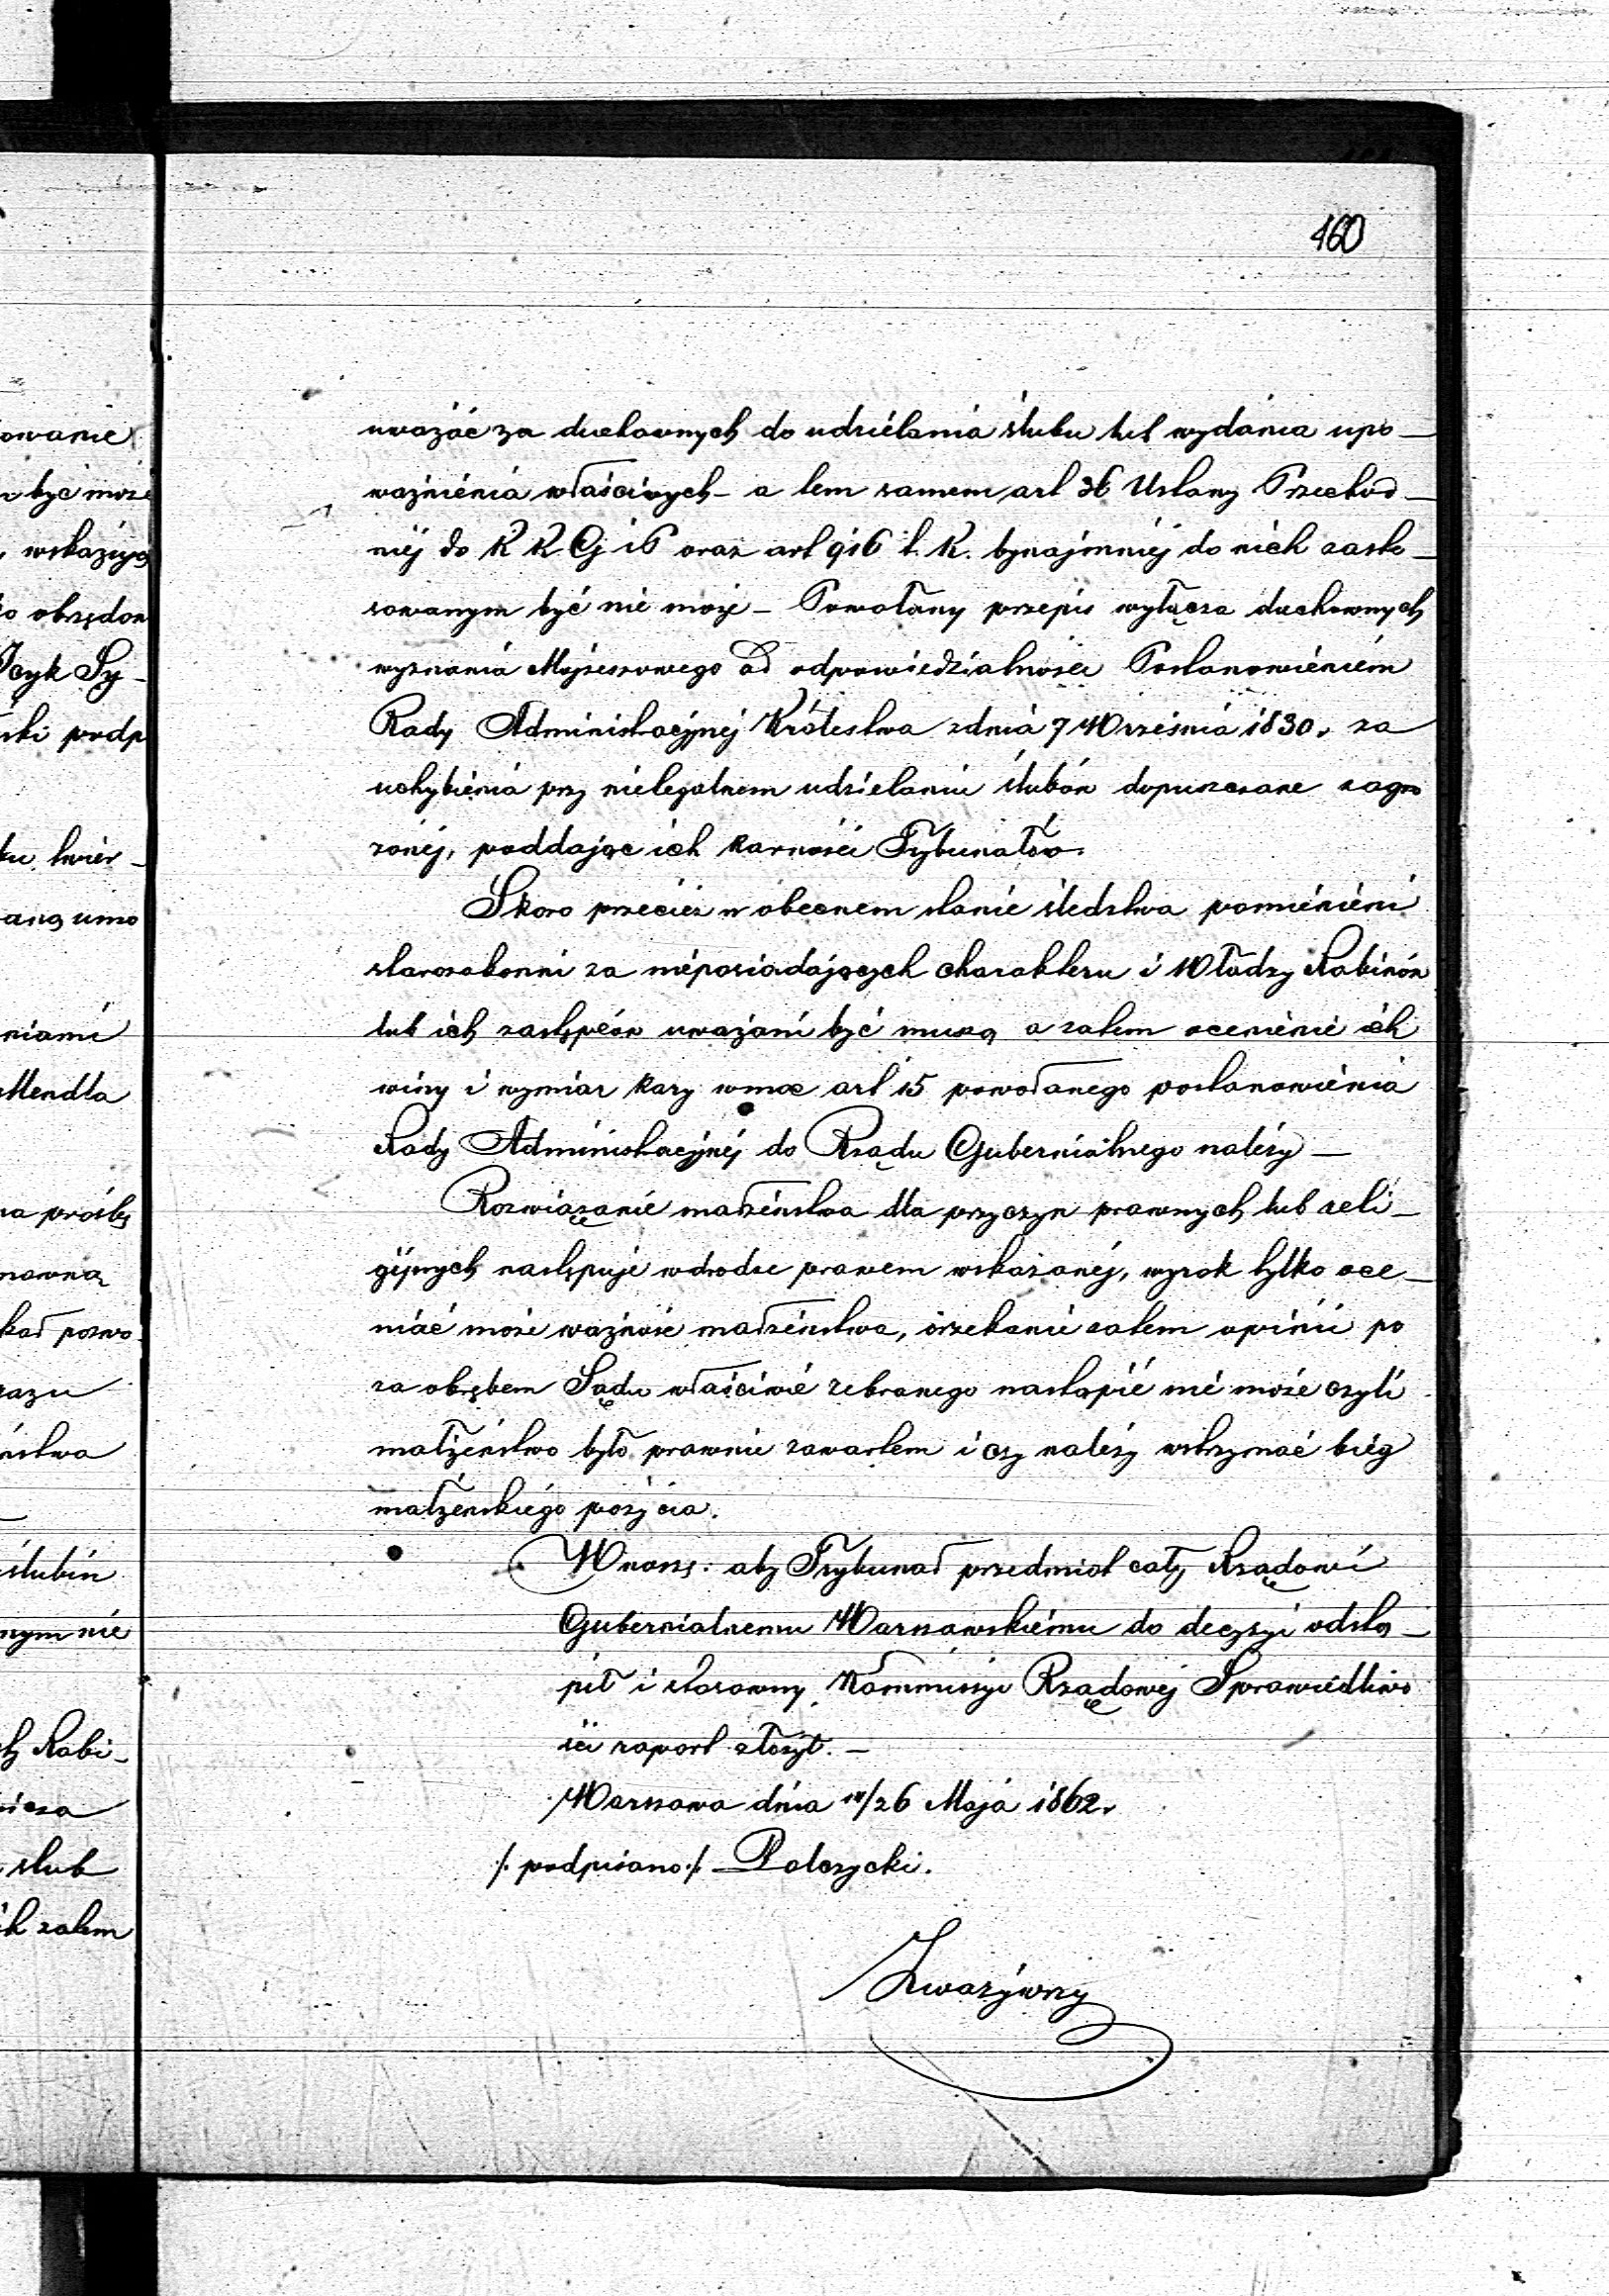 160
uważać za duchownych do udzielania ślubu lub wydania upo—
ważnienia właściwych – a tem samem art 36 Ustawy Przechod—
niej do K K. G i P oraz art 916 t. K. bynajmniej do nich zasto—
sowanym być nie może – Powołany przepis wyłącza duchownych
wyznania Mojżeszowego od odpowiedzialności Postanowieniem
Rady Administracyjnej Królestwa z dnia 7 Września 1830 r. za
uchybienia przy nielegalnem udzielaniu ślubów dopuszczane zagro
żonej, poddając ich karności Trybunałów.
Skoro przecież w obecnem stanie śledztwa pomienieni
starozakonni za nieposiadających charakteru i Władzy Rabinów
lub ich zastępców uważani być muszą a zatem ocenienie ich
winy i wymiar kary w moc art 15 powołanego postanowienia
Rady Administracyjnej do Rządu Gubernialnego należy —
Rozwiązanie małżeństwa dla przyczyn prawnych lub reli—
gijnych następuje w drodze prawem wskazanej, wyrok tylko oce—
niać może ważność małżeństwa, orzekanie zatem opinii po
za obrębem Sądu właściwie zebranego nastąpić nie może czyli
małżeństwo było prawnie zawartem i czy należy wstrzymać bieg
małżeńskiego pożycia.
Wnoszę: aby Trybunał przedmiot cały Rządowi
Gubernialnemu Warszawskiemu do decyzyi odstą—
pił i stosowny Kommissyi Rządowej Sprawiedliwo
ści raport złożył. —
Warszawa dnia 14/26 Maja 1862 r.
/. podpisano ./ Palczycki.
Zważywszy
owanie
i być może
, wskazują
o obrzędom
Icyk Sy—
ski podp
ku twier—
aną umo
niami
Mendla
na prośby
kał pozwo
razu
ństwa
ślubin
nym nie
h Rabi—
ślub
ich zatem